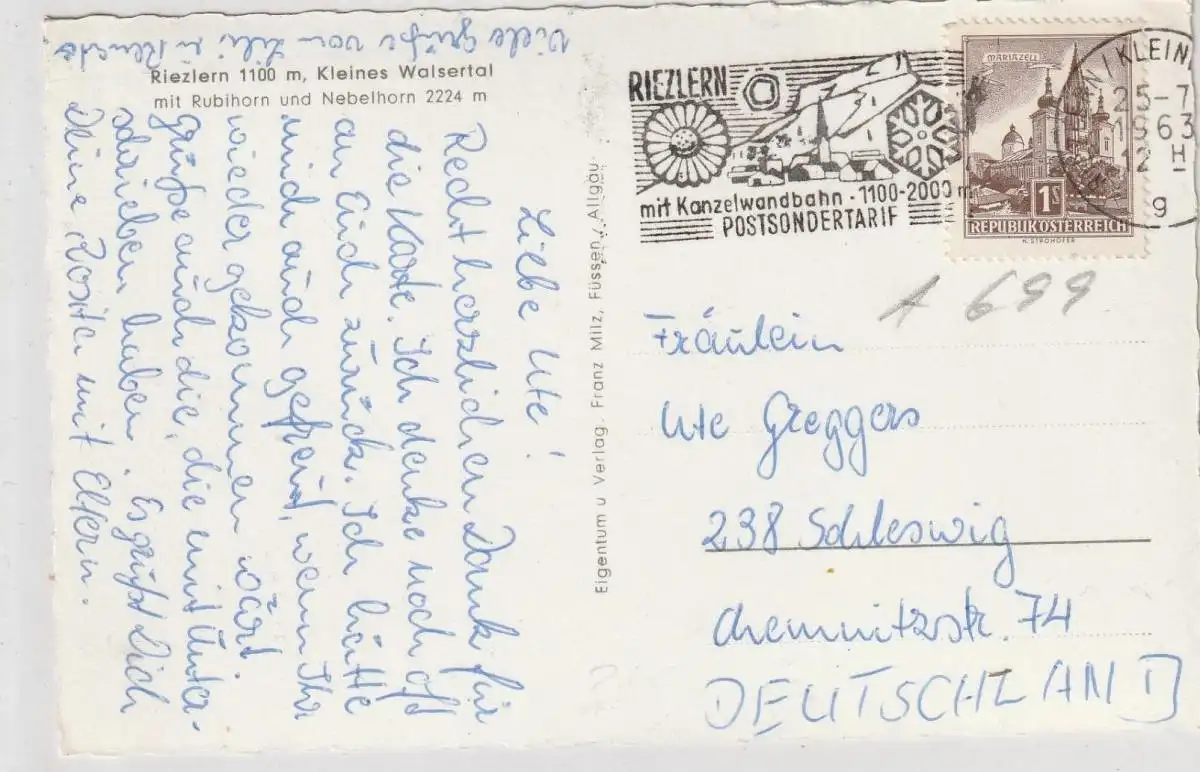 Viele Grüße von Lili u.
Riezlern 1100 m, Kleines Walsertal
mit Rubihorn und Nebelhorn 2224 m
Liebe Ute!
Recht herzlichen Dank für
die Karte. Ich denke noch oft
an Euch zurück. Ich hätte
mich auch gefreut, wenn Ihr
wieder gekommen wärt.
Grüße auch die, die mit Unta-
schrieben haben. Es grüßt Dich
Deine Rosite mit Eltern.
Eigentum u Verlag, Franz Milz, Füssen / Allgäu.
RIEZLERN
mit Kanzelwandbahn · 1100-2000 m
POSTSONDERTARIF
MARIAZELL
1S
REPUBLIK ÖSTERREICH
H. STROHOFER
KLEIN
25-7
1963
9
A 699
Fräulein
Ute Greggers
238 Schleswig
Chemnitzstr. 74
DEUTSCHLAND